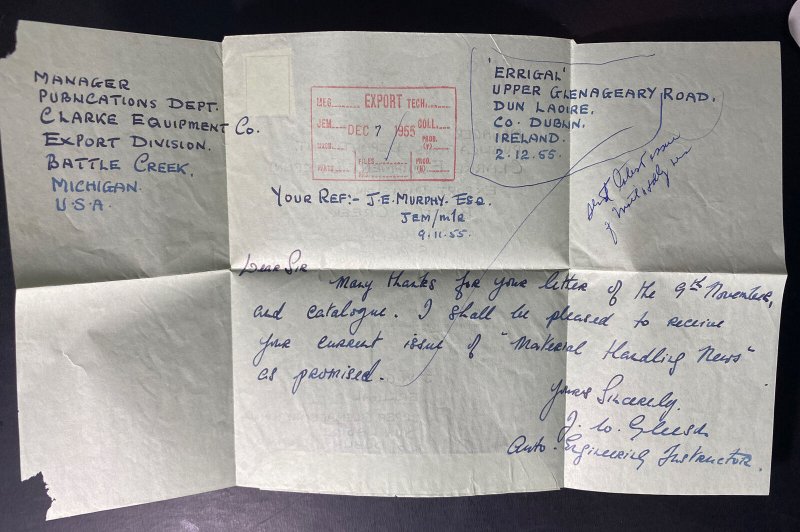 MANAGER
PUBLICATIONS DEPT.
CLARKE EQUIPMENT Co.
EXPORT DIVISION.
BATTLE CREEK,
MICHIGAN.
U.S.A.
'ERRIGAL'
UPPER GLENAGEARY ROAD.
DUN LAOIRE.
CO. DUBLIN.
IRELAND.
2.12.55.
EXPORT TECH.
JEM. DEC 7 1955 COLL.
PROD.
FILES
PROD.
sent latest issue
of
YOUR REF:- J.E. MURPHY. ESQ.
JEM/MIR
9.11.55.
Dear Sir
Many thanks for your letter of the 9th November,
and catalogue. I shall be pleased to receive
your current issue of "Material Handling News"
as promised.
Yours Sincerely.
J. W.
Auto. Engineering Instructor.